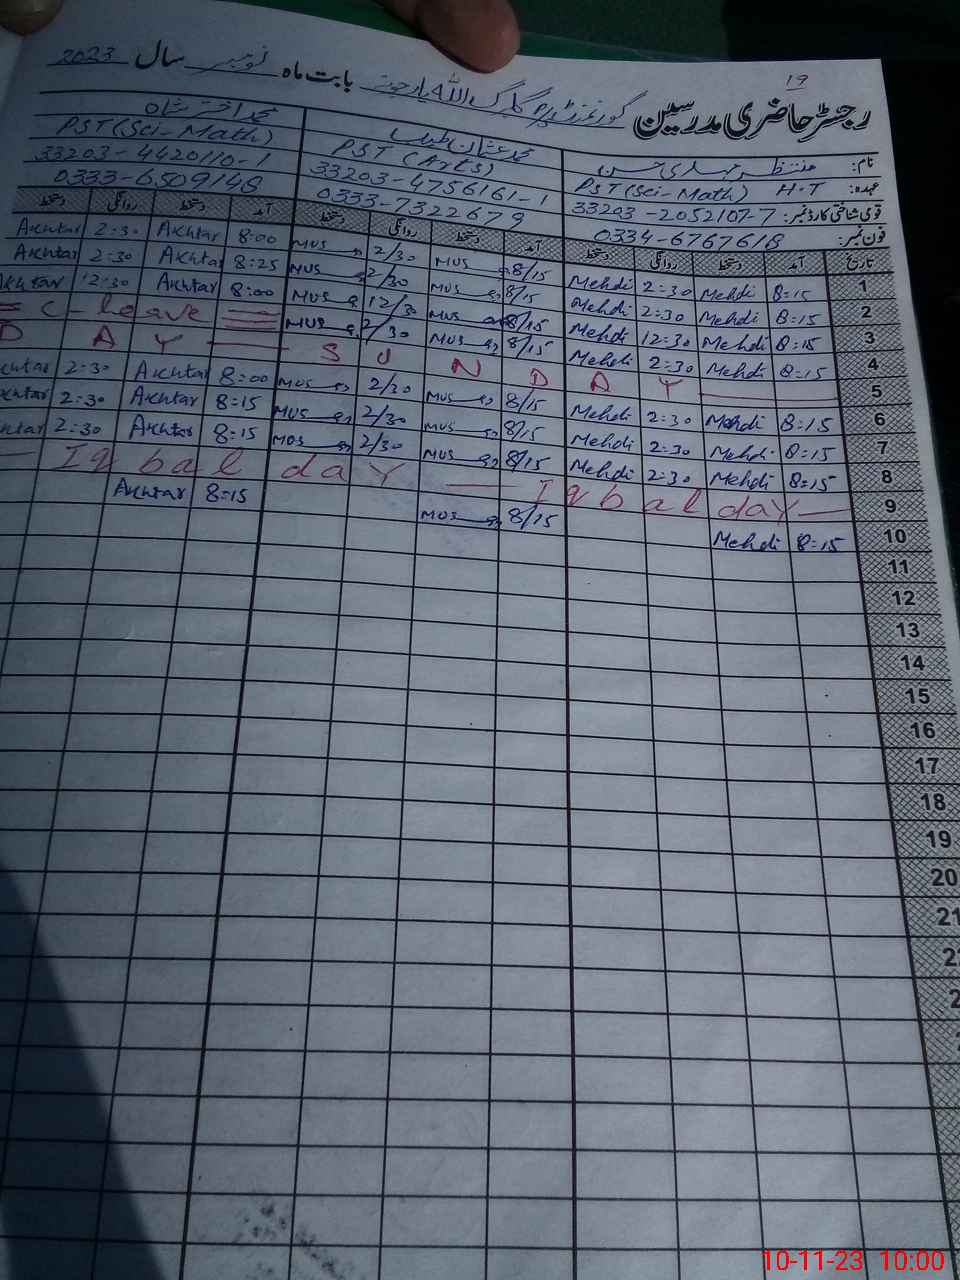 19
رجسٹر حاضری مدرسین گورنمنٹ بابت ماہ نومبر سال 2023
نام: منتظر مہدی حسن محمد عثمان طیب محمد اختر شاہ
عہدہ: PST (Sci-Math) H.T PST (Arts) PST (Sci-Math)
قومی شناختی کارڈ نمبر: 33203-2052107-7 33203-4756161-1 33203-4420110-1
فون نمبر: 0334-6767618 0333-7322679 0333-6509148
تاریخ آمد دستخط روانگی دستخط آمد دستخط روانگی دستخط آمد دستخط روانگی دستخط
Akhtar 2:30 Akhtar 8:00 MUS 2/30 MUS 8/15 Mehdi 2:30 Mehdi 8:15 1
Akhtar 2:30 Akhtar 8:25 MUS 2/30 MUS 8/15 Mehdi 2:30 Mehdi 8:15 2
Akhtar 12:30 Akhtar 8:00 MUS 12/30 MUS 8/15 Mehdi 12:30 Mehdi 8:15 3
C-leave MUS 2/30 MUS 8/15 Mehdi 2:30 Mehdi 8:15 4
D A Y S U N D A Y 5
khtar 2:30 Akhtar 8:00 MUS 2/30 MUS 8/15 Mehdi 2:30 Mehdi 8:15 6
khtar 2:30 Akhtar 8:15 MUS 2/30 MUS 8/15 Mehdi 2:30 Mehdi 8:15 7
htar 2:30 Akhtar 8:15 MUS 2/30 MUS 8/15 Mehdi 2:30 Mehdi 8:15 8
Iqbal day Iqbal day 9
Akhtar 8:15 MUS 8/15 Mehdi 8:15 10
11
12
13
14
15
16
17
18
19
20
21
2
2
10-11-23 10:00